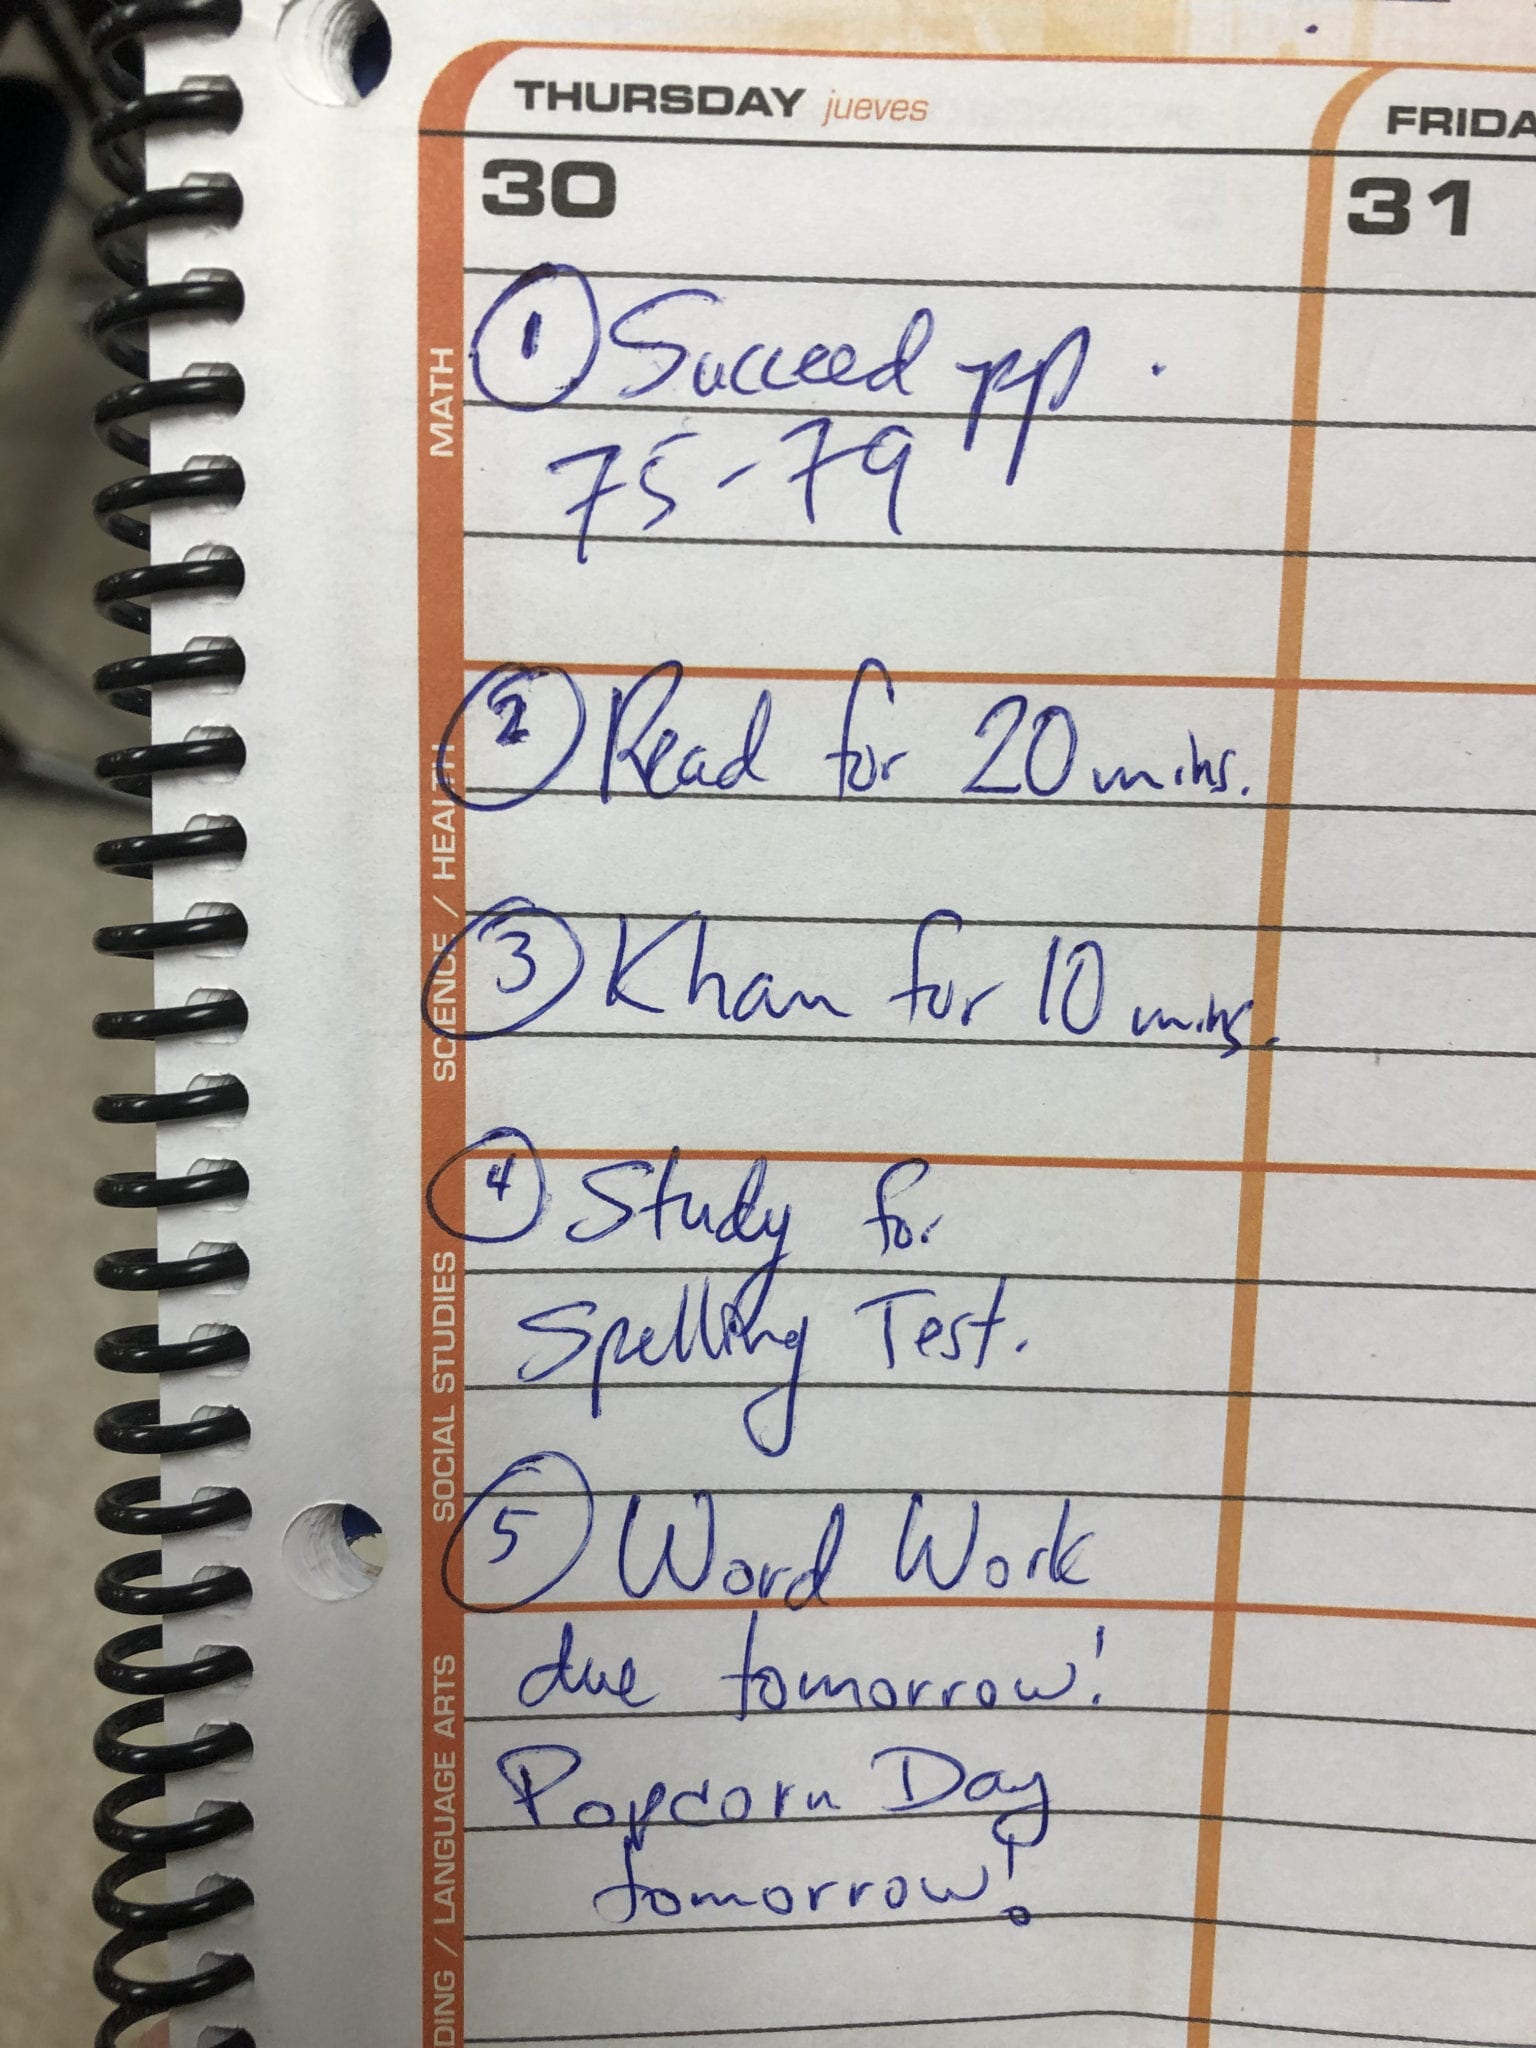 THURSDAY jueves
FRIDA
30
31
MATH
① Succeed pp.
75-79
SCIENCE / HEALTH
② Read for 20 mins.
③ Khan for 10 mins.
SOCIAL STUDIES
④ Study for
Spelling Test.
⑤ Word Work
DING / LANGUAGE ARTS
due tomorrow!
Popcorn Day
tomorrow!